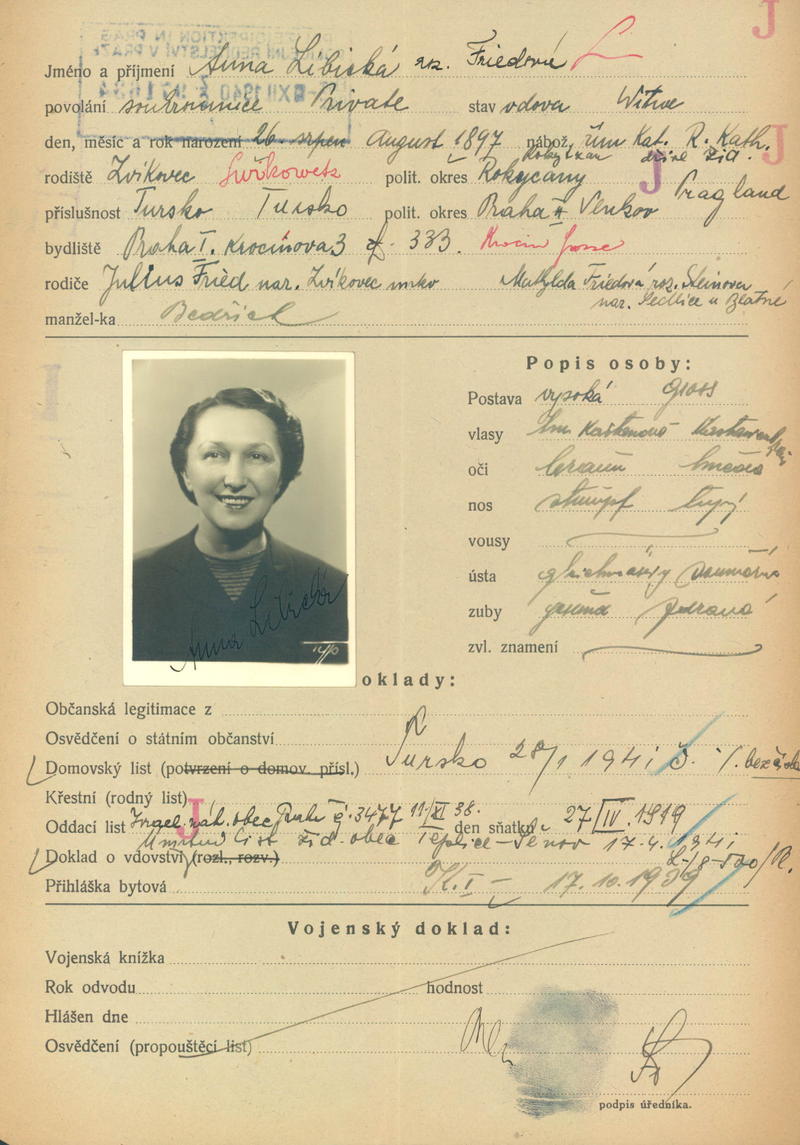 J
Jméno a příjmení Anna Libická roz. Friedová
povolání soukromnice Private stav vdova Witwe
den, měsíc a rok narození 26. srpen August 1897 nábož. řím. Kat. R. Kath.
Rokytzan dříve žid.
J
rodiště Zvíkovec Swikowetz polit. okres Rokycany
J
příslušnost Tursko Tursko polit. okres Praha Venkov Prag land
bydliště Praha I. Krocínova 3 čp. 333. Krocin Gasse
rodiče Julius Fried nar. Zvíkovec Matylda Friedová roz. Steinova
nar. Sedlice u Blatné
manžel-ka Bedřich
Popis osoby:
Postava vysoká gross
vlasy tm. Kaštanové
oči braun hnědé
nos stumpf tupý
vousy
ústa
zuby gesund zdravé
zvl. znamení
Anna Libická
Doklady:
Občanská legitimace z
Osvědčení o státním občanství
Domovský list (potvrzení o domov. přísl.) Tursko 28/1 1941 č. /. bez čísla
Křestní (rodný list)
J
Oddací list Israel. náb. obec Praha č. 3477 11/XI 38. den sňatku 27/IV. 1919
Úmrtní list žid. obec Teplice-Šenov 17.4. 1941
Doklad o vdovství (rozl., rozv.)
Přihláška bytová I – 17.10.1939
Vojenský doklad:
Vojenská knížka
Rok odvodu hodnost
Hlášen dne
Osvědčení (propouštěcí list)
podpis úředníka.